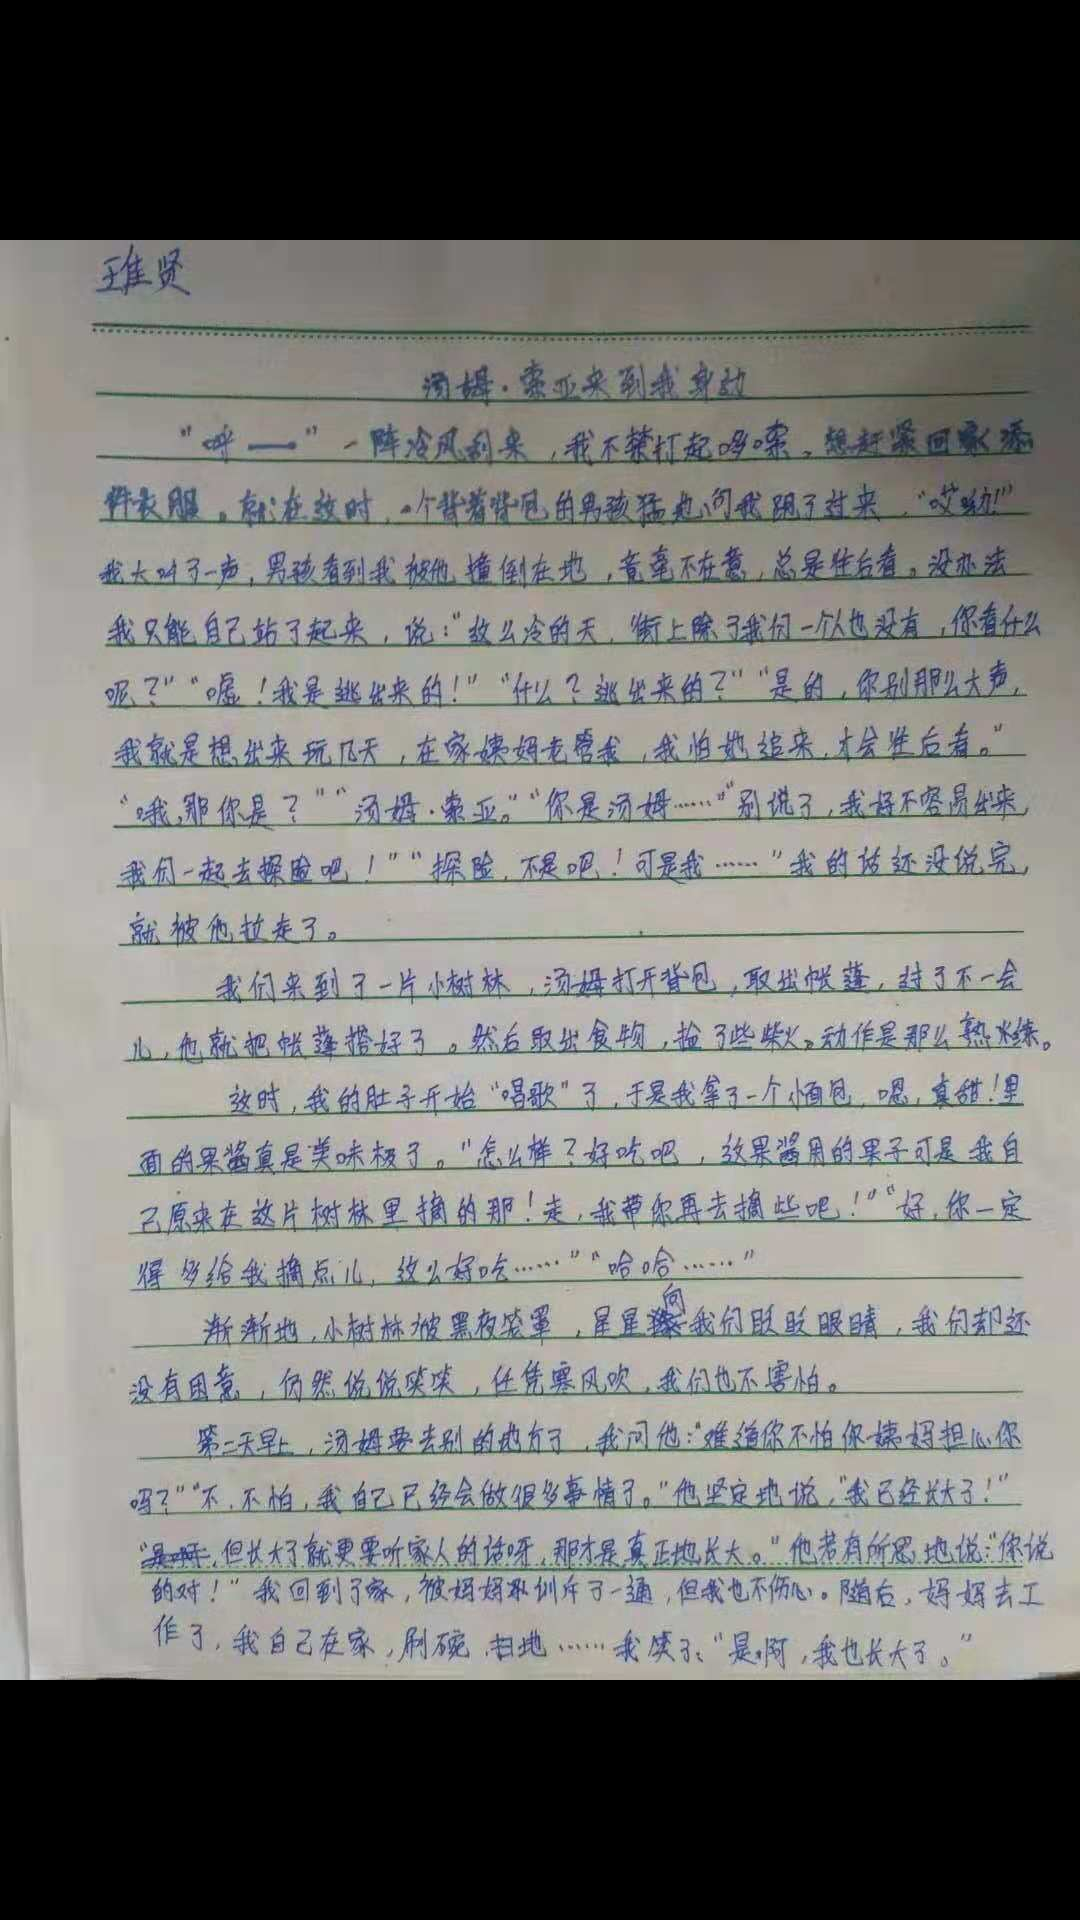 王隹贤
汤姆·索亚来到我身边
“呼——”一阵冷风刮来，我不禁打起哆嗦。想赶紧回家添
件衣服。就在这时，一个背着背包的男孩猛地向我跑了过来，“哎呦！”
我大叫了一声，男孩看到我被他撞倒在地，竟毫不在意，总是往后看。没办法
我只能自己站了起来，说：“这么冷的天，街上除了我们一个人也没有，你看什么
呢？”“嘘！我是逃出来的！”“什么？逃出来的？”“是的，你别那么大声，
我就是想出来玩几天，在家姨妈老管我，我怕她追来，才会往后看。”
“哦，那你是？”“汤姆·索亚。”“你是汤姆……”“别说了，我好不容易出来，
我们一起去探险吧！”“探险，不是吧！可是我……”我的话还没说完，
就被他拉走了。
我们来到了一片小树林，汤姆打开背包，取出帐篷，过了不一会
儿，他就把帐篷搭好了。然后取出食物，捡了些柴火。动作是那么熟练。
这时，我的肚子开始“唱歌”了，于是我拿了一个小面包，嗯，真甜！里
面的果酱真是美味极了。“怎么样？好吃吧，这果酱用的果子可是我自
己原来在这片树林里摘的那！走，我带你再去摘些吧！”“好，你一定
得多给我摘点儿，这么好吃……”“哈哈……”
渐渐地，小树林被黑夜笼罩，星星向我们眨眨眼睛，我们却还
没有困意，仍然说说笑笑，任凭寒风吹，我们也不害怕。
第二天早上，汤姆要去别的地方了，我问他：“难道你不怕你姨妈担心你
吗？”“不，不怕，我自己已经会做很多事情了。”他坚定地说，“我已经长大了！”
“但长大了就更要听家人的话呀，那才是真正地长大。”他若有所思地说：“你说
的对！”我回到了家，被妈妈训斥了一通，但我也不伤心。随后，妈妈去工
作了，我自己在家，刷碗，扫地……我笑了：“是啊，我也长大了。”